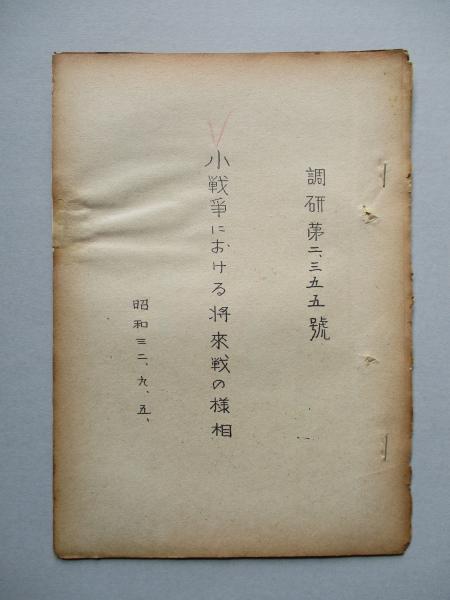 調研第二、三五五號
小戦爭における将來戦の様相
昭和三二、九、五、